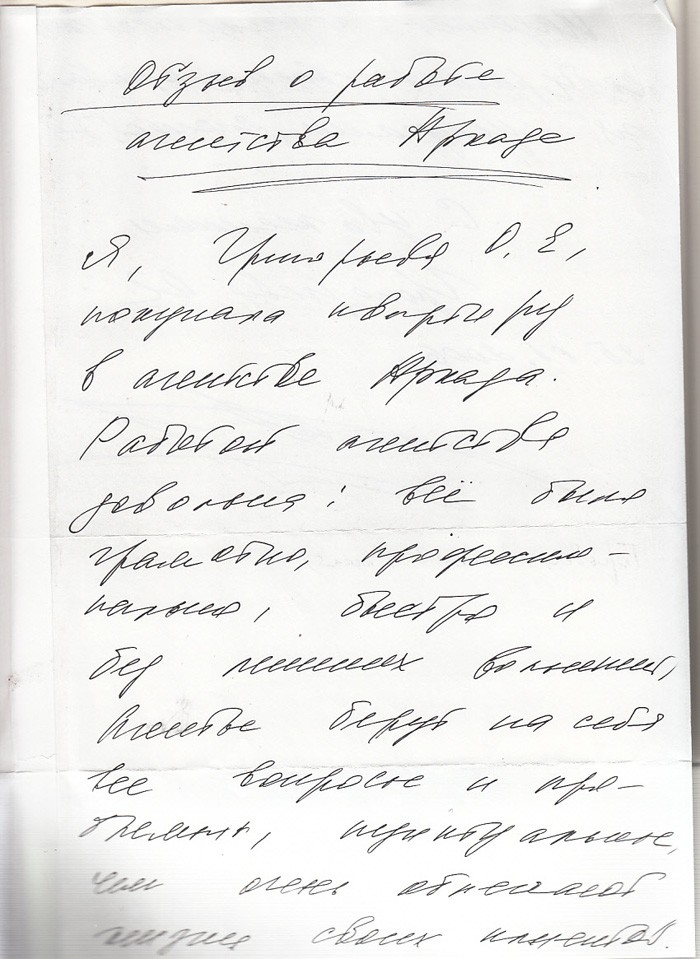 Отзыв о работе
агентства Аркада
Я, Григорьева О. Е.,
покупала квартиру
в агентстве Аркада.
Работой агентства
довольна: всё было
грамотно, профессио-
нально, быстро и
без лишних волнений.
Агенты берут на себя
все вопросы и про-
блемы, пунктуальные,
чем очень облегчают
жизнь своих клиентов.